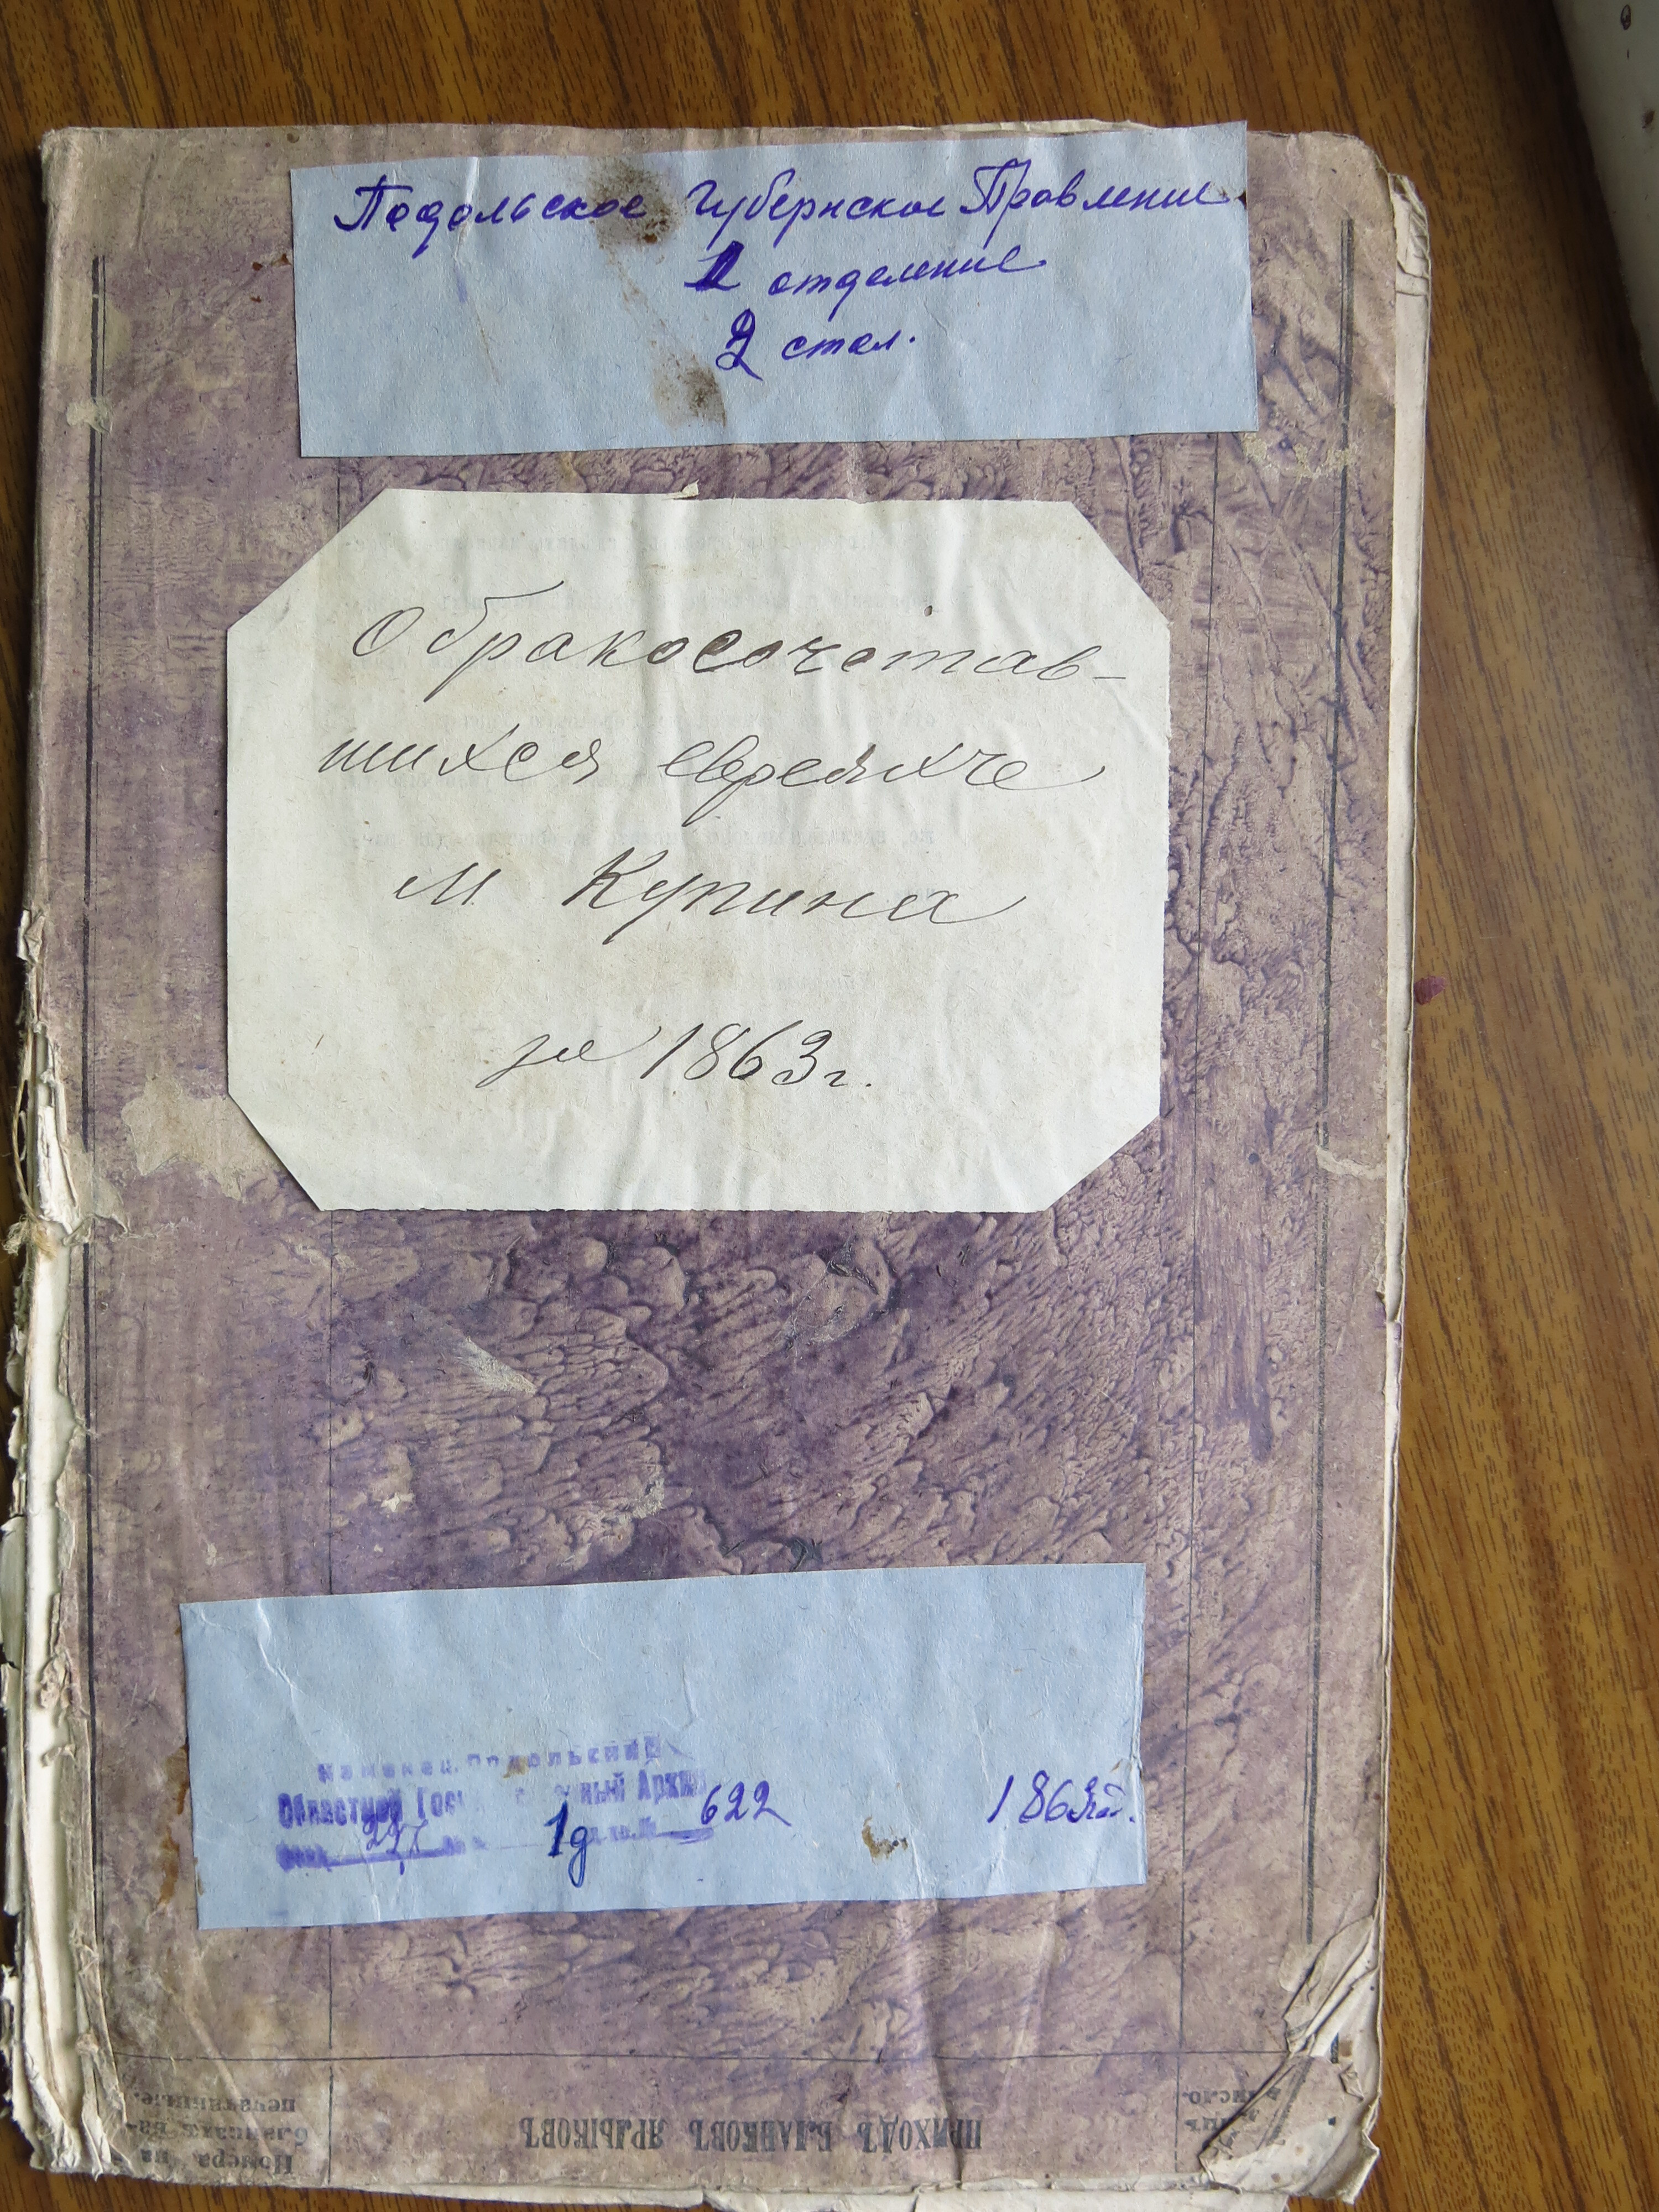 Подольское Губернское Правление
1 отделение
2 стол.
О бракосочетав-
шихся евреях че
м Купина
за 1863 г.
Каменец. Подольский
Областной Государственный Архив
Фонд 227 оп. 1д д. № 622 1863 г.
ПРИХОДЪ БЛАНКОВЪ ЯРЛЫКОВЪ
Номера на
бланкахъ на-
печатанные.
число.